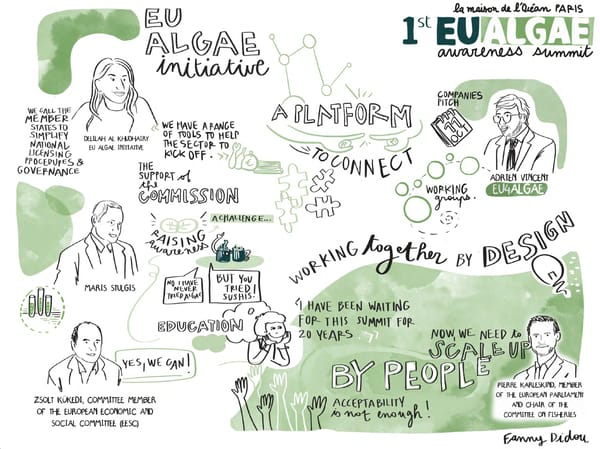 EU
ALGAE
initiative
la maison de l'Océan PARIS
1st EU ALGAE
awareness summit
WE CALL THE
MEMBER
STATES TO
SIMPLIFY
NATIONAL
LICENSING
PROCEDURES &
GOVERNANCE
DELILAH AL KHUDHAIRY
EU ALGAE INITIATIVE
WE HAVE A RANGE
OF TOOLS TO HELP
THE SECTOR TO
KICK OFF.
A PLATFORM
TO CONNECT
COMPANIES
PITCH
WORKING
groups.
ADRIEN VINCENT
EU4ALGAE
THE
SUPPORT of
the
COMMISSION
A CHALLENGE...
RAISING
Awareness
MARIS STULGIS
NO I HAVE
NEVER
TRIED ALGAE
BUT YOU
TRIED
SUSHIS!
EDUCATION
WORKING together BY DESIGN
YES, WE CAN!
ZSOLT KÜKEDI, COMMITTEE MEMBER
OF THE EUROPEAN ECONOMIC AND
SOCIAL COMMITTEE (EESC)
I HAVE BEEN WAITING
FOR THIS SUMMIT FOR
20 YEARS
NOW, WE NEED to
SCALE UP
BY PEOPLE
ACCEPTABILITY
is not enough!
PIERRE KARLESKIND, MEMBER
OF THE EUROPEAN PARLIAMENT
AND CHAIR OF THE
COMMITTEE ON FISHERIES
Fanny Didou